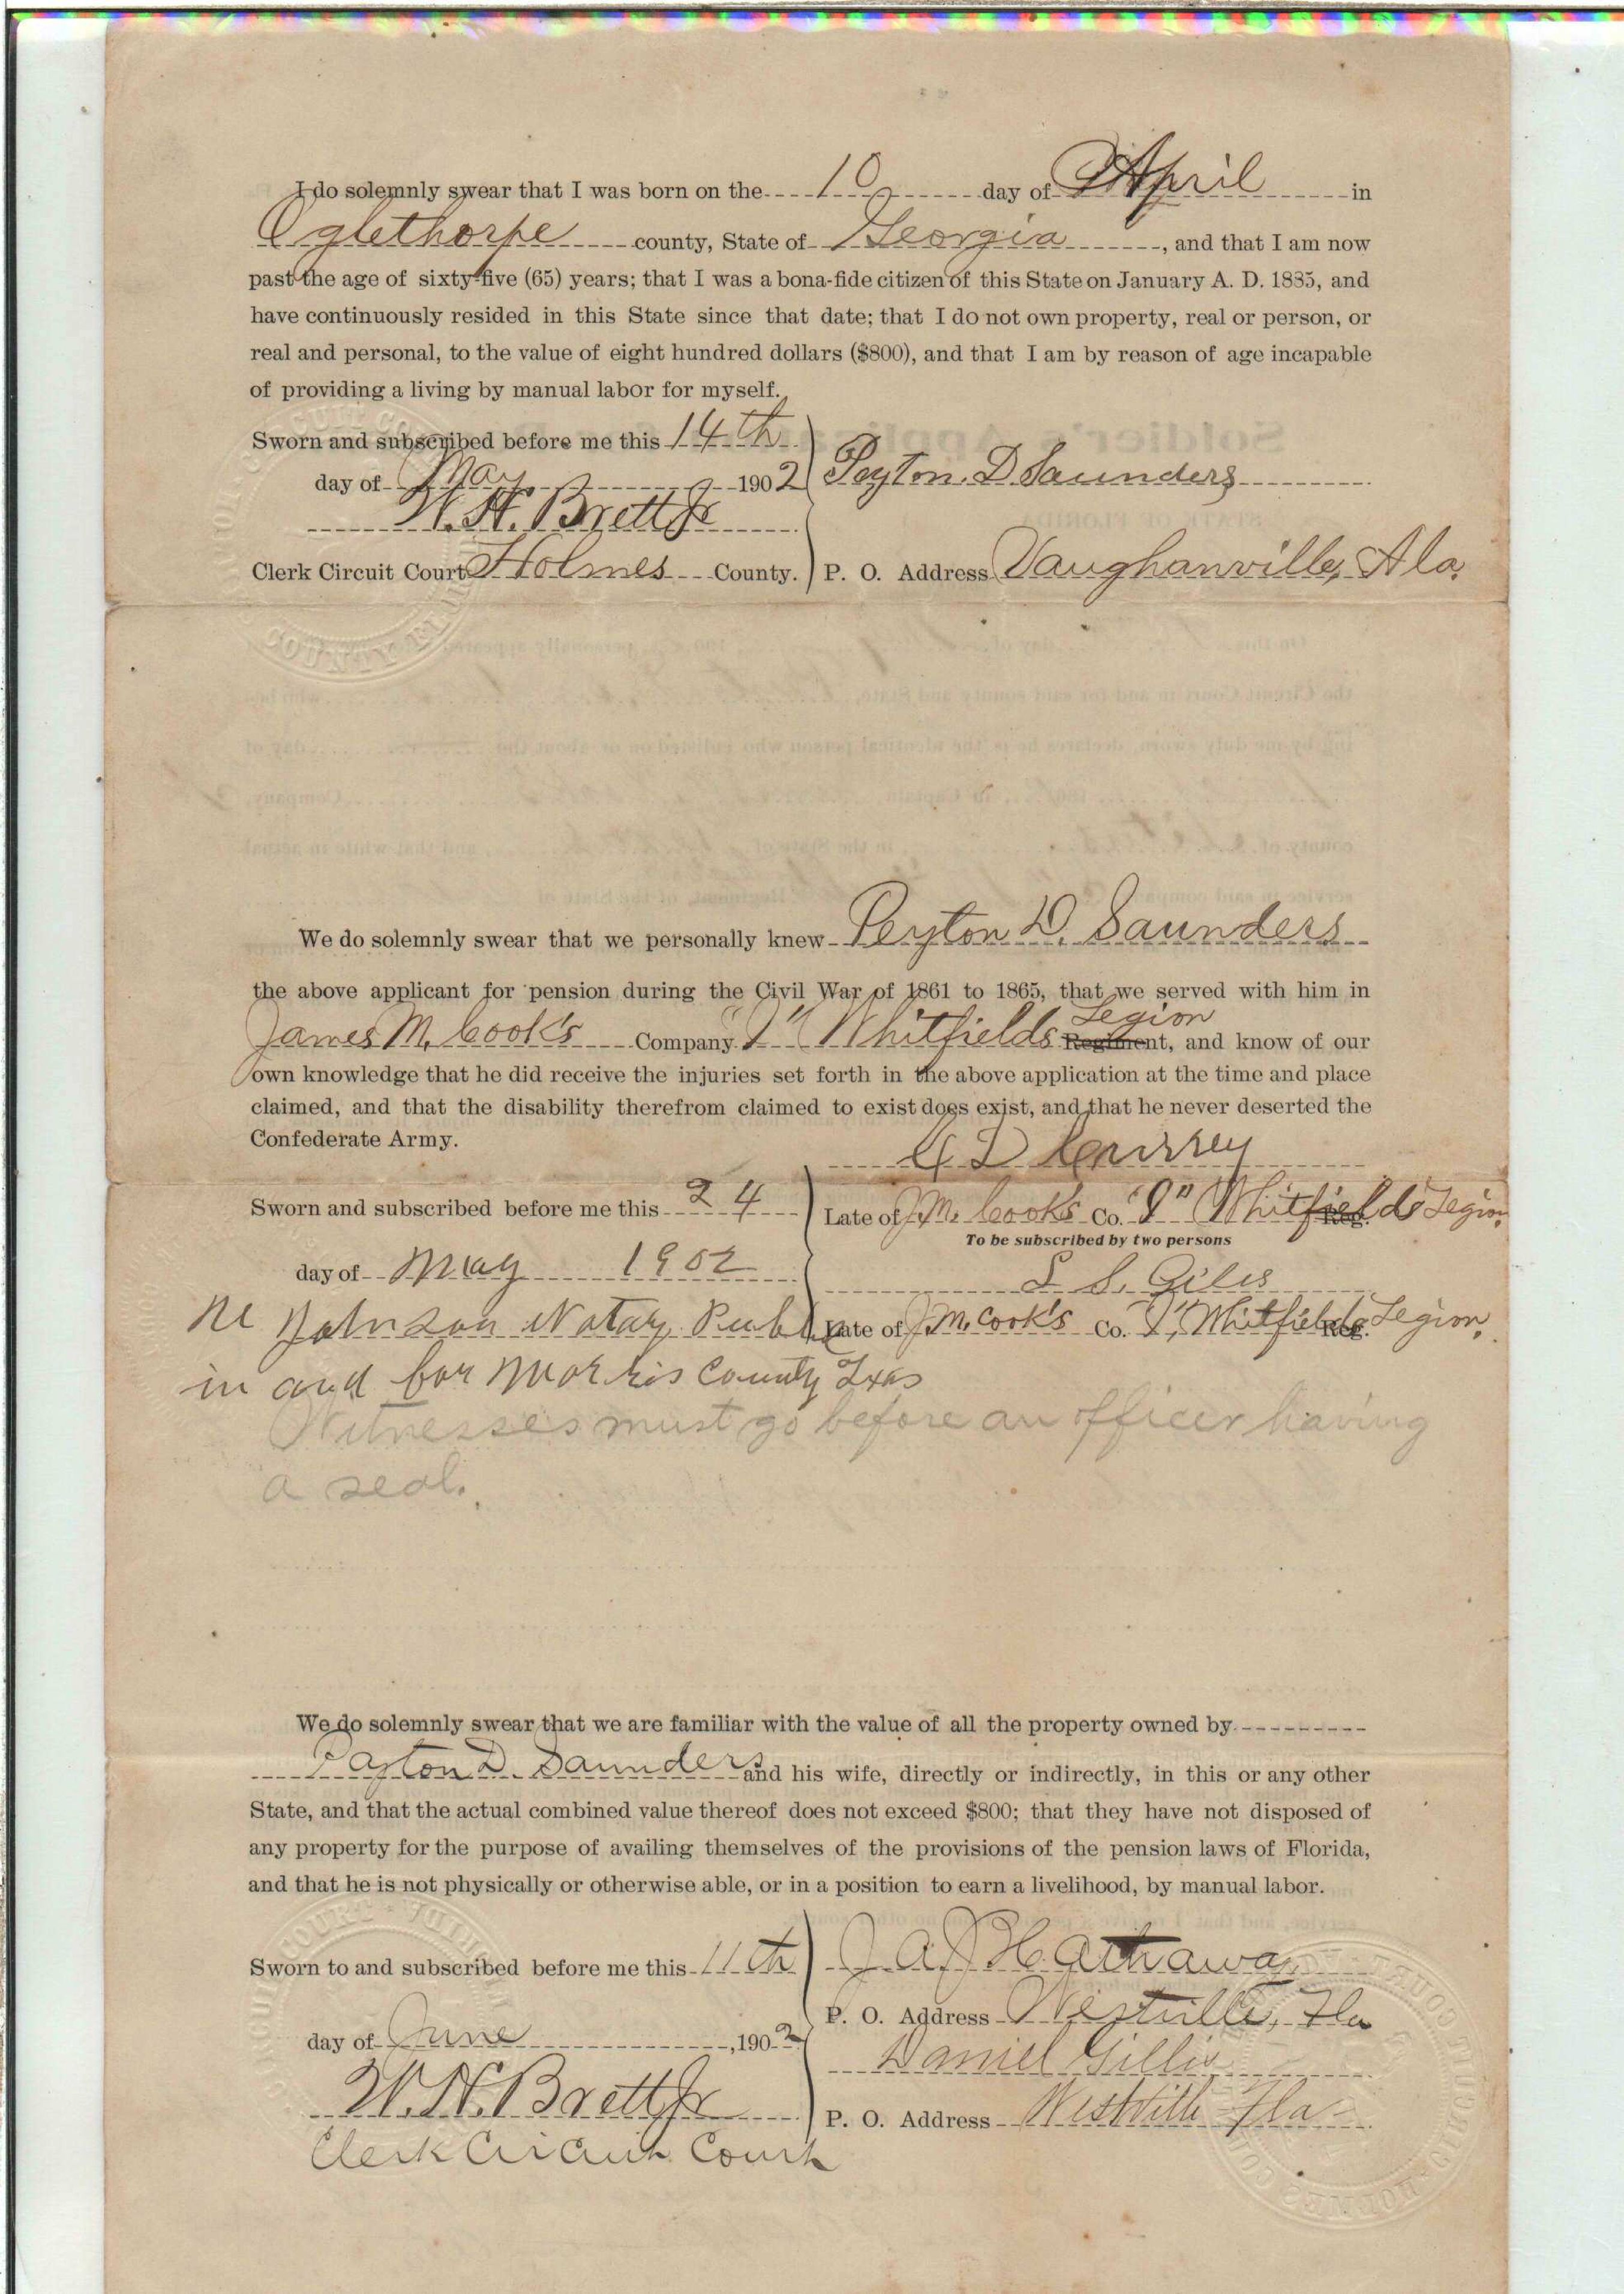 I do solemnly swear that I was born on the 10 day of April in
Oglethorpe county, State of Georgia, and that I am now
past the age of sixty-five (65) years; that I was a bona-fide citizen of this State on January A. D. 1885, and
have continuously resided in this State since that date; that I do not own property, real or person, or
real and personal, to the value of eight hundred dollars ($800), and that I am by reason of age incapable
of providing a living by manual labor for myself.
Sworn and subscribed before me this 14th
day of May 1902 Peyton. D Saunders
W. H. Brett Jr
Clerk Circuit Court Holmes County. P. O. Address Vaughanville, Ala.
We do solemnly swear that we personally knew Peyton D. Saunders
the above applicant for pension during the Civil War of 1861 to 1865, that we served with him in
Legion
James M. Cook's Company "I" Whitfields Regiment, and know of our
own knowledge that he did receive the injuries set forth in the above application at the time and place
claimed, and that the disability therefrom claimed to exist does exist, and that he never deserted the
Confederate Army.
D
Sworn and subscribed before me this 24 Late of J. M. Cook's Co. "I" Whitfield's Reg. Legion,
To be subscribed by two persons
day of May 1902
L S. Giles
Johnson Notary Public Late of J. M. Cook's Co. "I", Whitfield's Reg. Legion,
in and for Morris County Txas
Witnesses must go before an officer having
a seal.
We do solemnly swear that we are familiar with the value of all the property owned by
Payton D. Saunders and his wife, directly or indirectly, in this or any other
State, and that the actual combined value thereof does not exceed $800; that they have not disposed of
any property for the purpose of availing themselves of the provisions of the pension laws of Florida,
and that he is not physically or otherwise able, or in a position to earn a livelihood, by manual labor.
Sworn to and subscribed before me this 11th J A J Hathaway
P. O. Address Westville, Fla
day of June, 1902
Daniel Gillis
W. H. Brett Jr
P. O. Address Westville Fla
Clerk Circuit Court